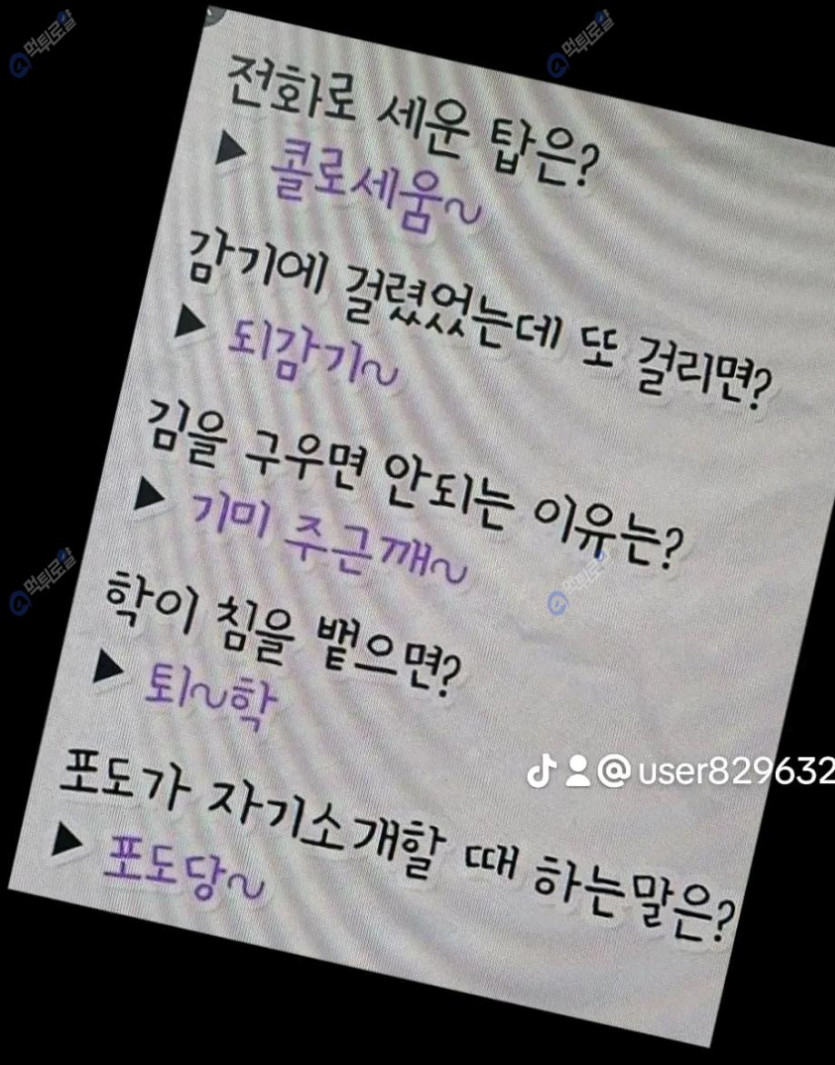 먹튀로얄
먹튀로얄
전화로 세운 탑은?
▶ 콜로세움~
감기에 걸렸었는데 또 걸리면?
▶ 되감기~
김을 구우면 안되는 이유는?
▶ 기미 주근깨~
먹튀로얄
먹튀로얄
학이 침을 뱉으면?
▶ 퇴~학
@user829632
포도가 자기소개할 때 하는말은?
▶ 포도당~